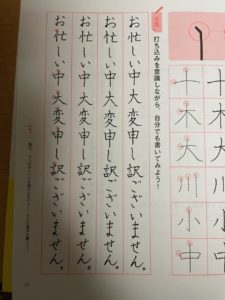 十 十
木 木
大 大
川 川
小 小
中 中
打ち込みを意識しながら、自分でも書いてみよう！
お忙しい中大変申し訳ございません。
お忙しい中大変申し訳ございません。
お忙しい中大変申し訳ございません。
お忙しい中大変申し訳ございません。